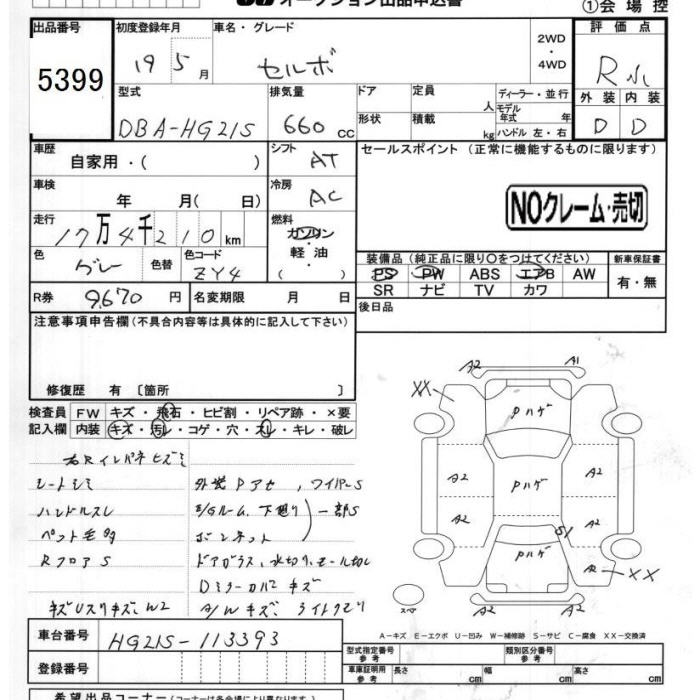 オークション出品申込書
①会場控
出品番号 初度登録年月 車名・グレード 2WD・4WD 評価点
5399 19 5月 セルボ R
外装 内装
D D
型式 排気量 ドア 定員 人 ディーラー・並行
モデル年式 年
DBA-HG21S 660cc 形状 積載 kg ハンドル 左・右
車歴 自家用・( ) シフト AT セールスポイント (正常に機能するものに限ります)
車検 年 月( 日) 冷房 AC
NOクレーム・売切
走行 17万4千210km 燃料 ガソリン 軽油 ( )
色 グレー 色替 色コード ZY4
装備品 (純正品に限り○をつけてください) 新車保証書
PS PW ABS エアB AW 有・無
SR ナビ TV カワ
R券 9,670円 名変期限 月 日 後日品
注意事項申告欄(不具合内容等は具体的に記入して下さい)
修復歴 有 [箇所 ]
検査員 FW キズ・飛石・ヒビ割・リペア跡・×要
記入欄 内装 キズ・汚レ・コゲ・穴・スレ・キレ・破レ
右Rインパネヒズミ
シートシミ 外装Pアセ、ワイパーS
ハンドルスレ E/Gルーム、下廻り 一部S
ペット毛 ボンネット
RフロアS ドアガラス、水切り、モール
Dミラーカバーキズ
キズUスリキズ、W2 A/Wキズ、ライトクモリ
A2 A1
XX
Pハゲ
A2 Pハゲ A2
A2 A2
S1
Pハゲ
XX
スペア
A2 A2
A-キズ E-エクボ U-凹み W-補修跡 S-サビ C-腐食 XX-交換済
車台番号 HG21S-113393
型式指定番号 参考 類別区分番号 参考
登録番号
車庫証明用 参考 長さ cm 幅 cm 高さ cm
希望出品コーナー(コーナーは各会場により異なります)